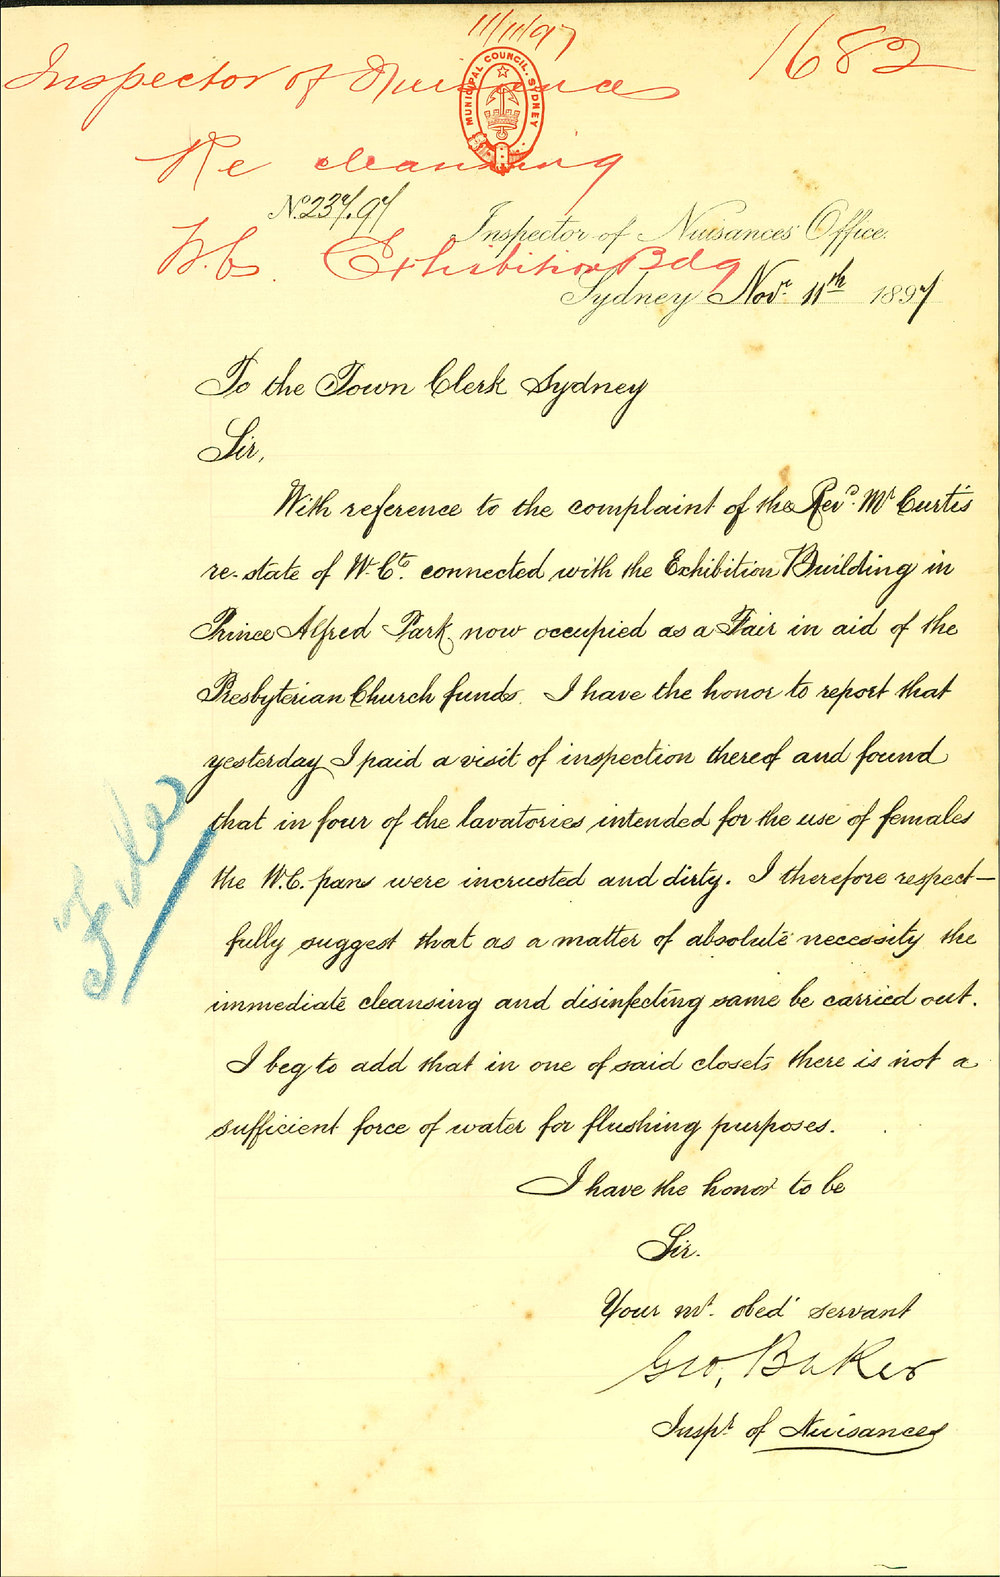 11/11/97
1682
Inspector of Nuisances
MUNICIPAL COUNCIL. SYDNEY
Re cleansing
No. 237.97
Inspector of Nuisances' Office.
W.Cs. Exhibition Bdg
Sydney Novr. 11th 1897
To the Town Clerk Sydney
Sir,
With reference to the complaint of the Revd. Mr Curtis
re-state of W.Cts. connected with the Exhibition Building in
Prince Alfred Park now occupied as a Fair in aid of the
Presbyterian Church funds. I have the honor to report that
yesterday I paid a visit of inspection thereof and found
that in four of the lavatories intended for the use of females
the W.C. pans were incrusted and dirty. I therefore respect-
fully suggest that as a matter of absolute necessity the
immediate cleansing and disinfecting same be carried out.
I beg to add that in one of said closets there is not a
sufficient force of water for flushing purposes.
File
I have the honor to be
Sir.
Your mt. obedt servant
Geo, Baker
Inspr of Nuisances